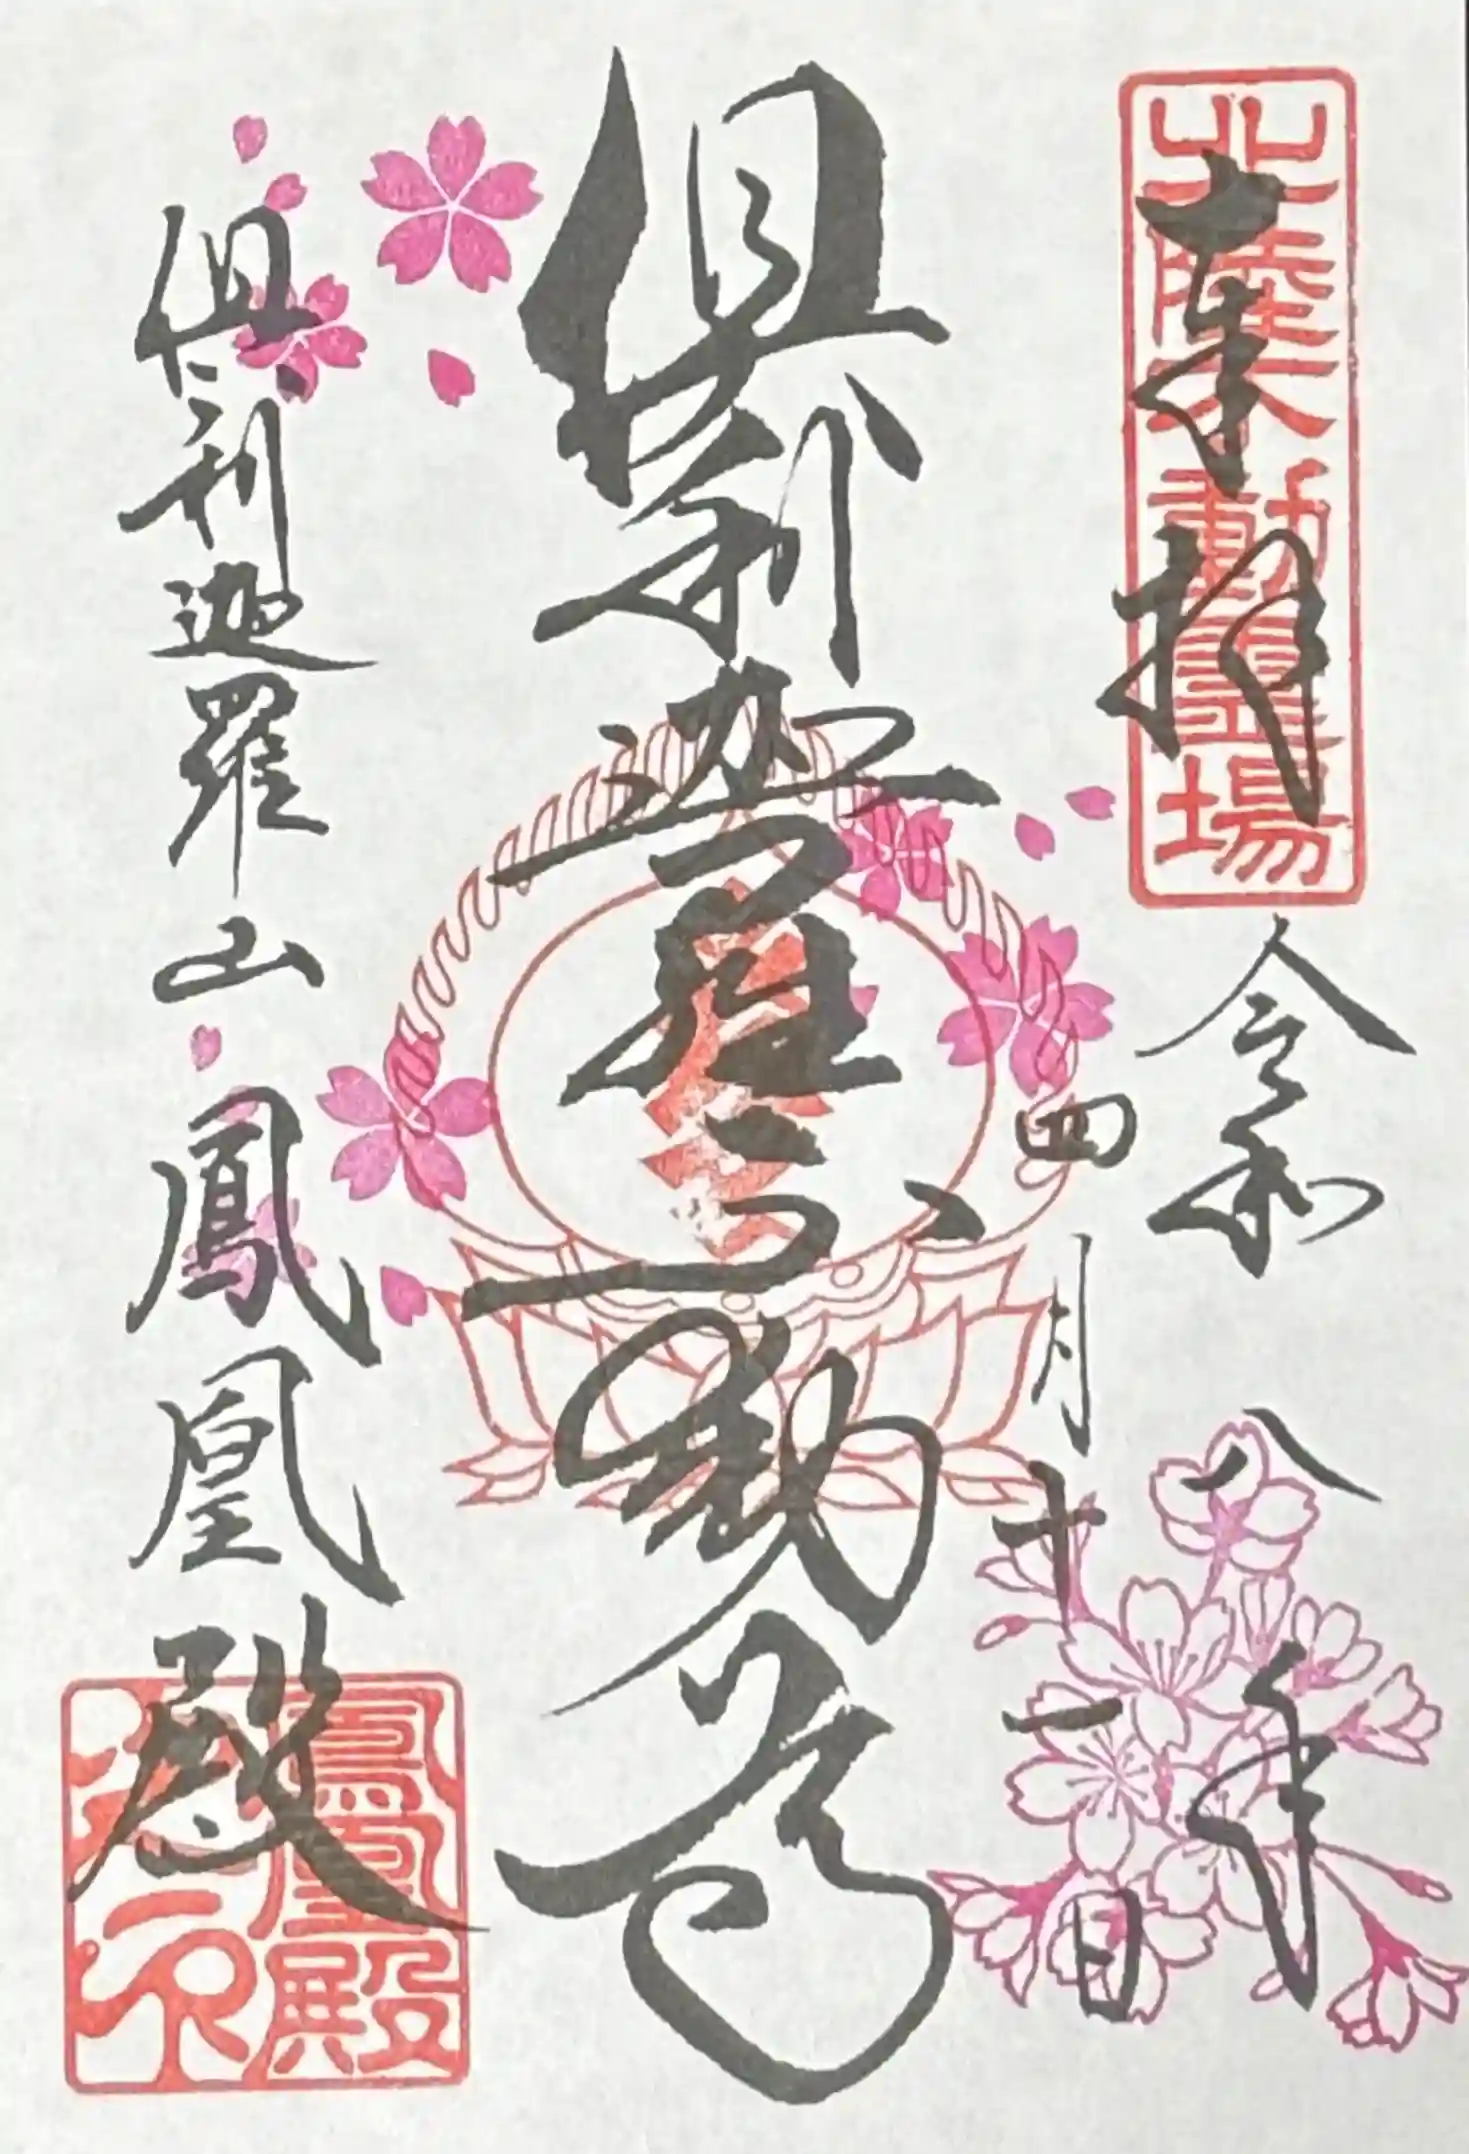 北陸不動霊場
奉拝
令和八年
四月十一日
倶利迦羅不動尊
倶利迦羅山 鳳凰殿
鳳凰殿